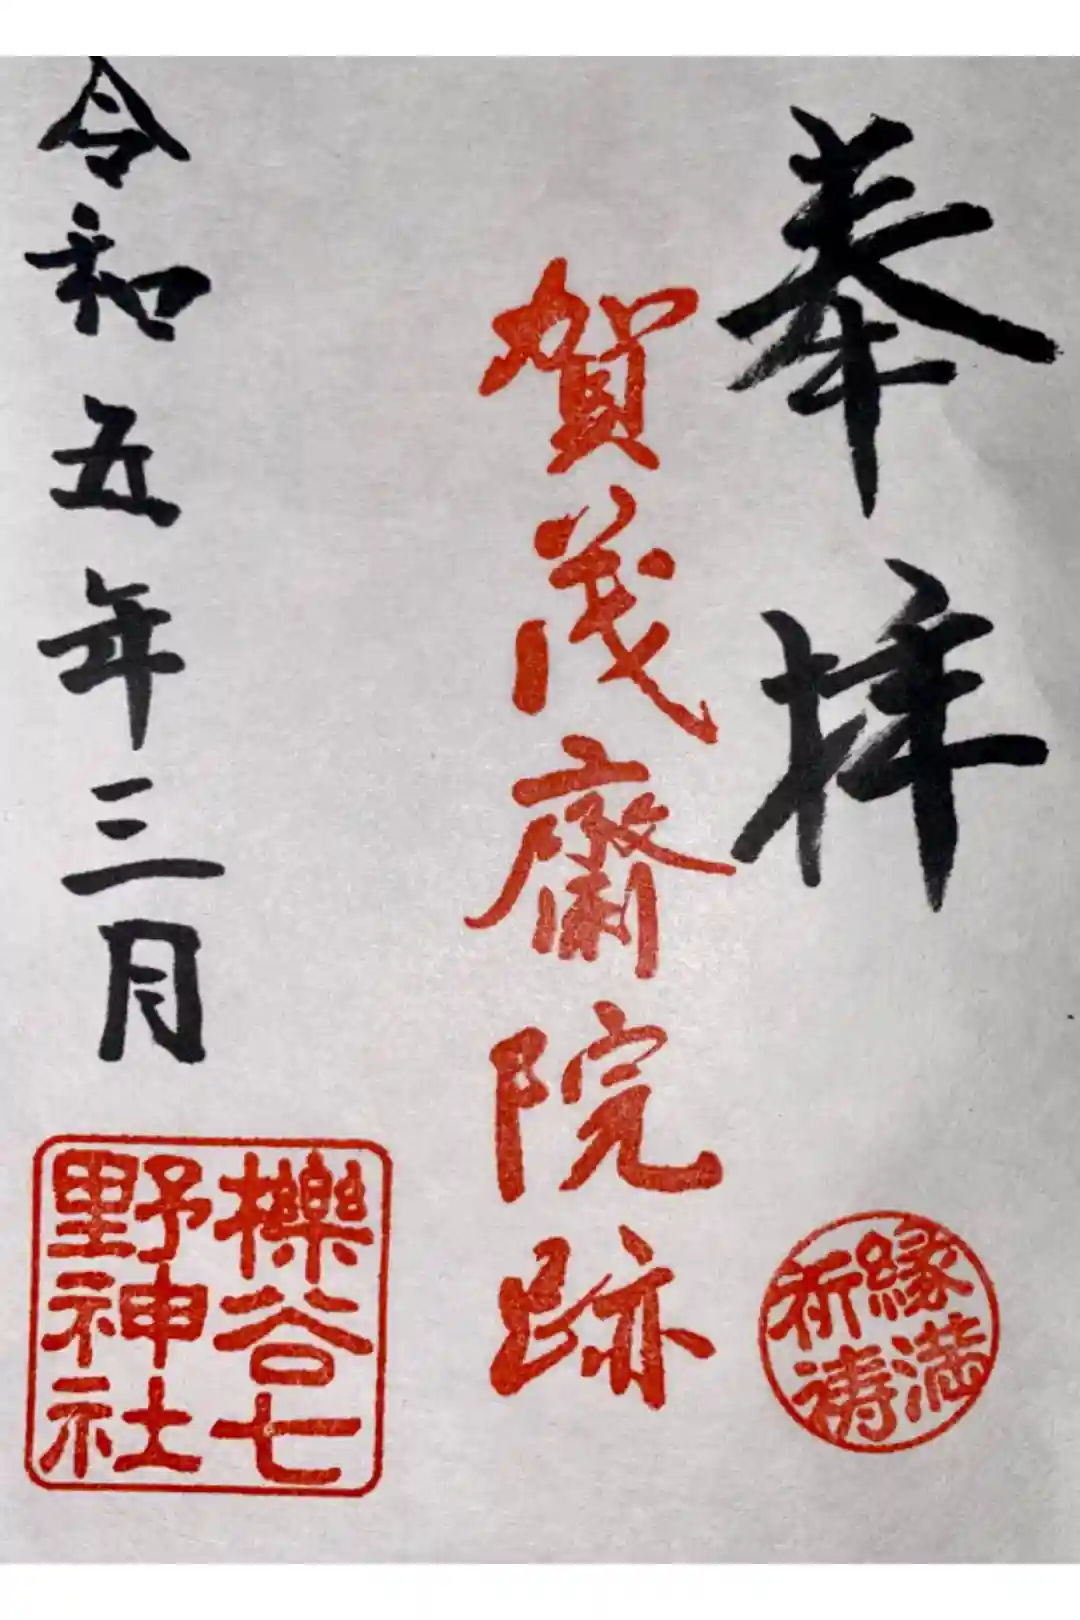 奉拝
縁満
祈祷
賀茂斎院跡
櫟谷七
野神社
令和五年三月